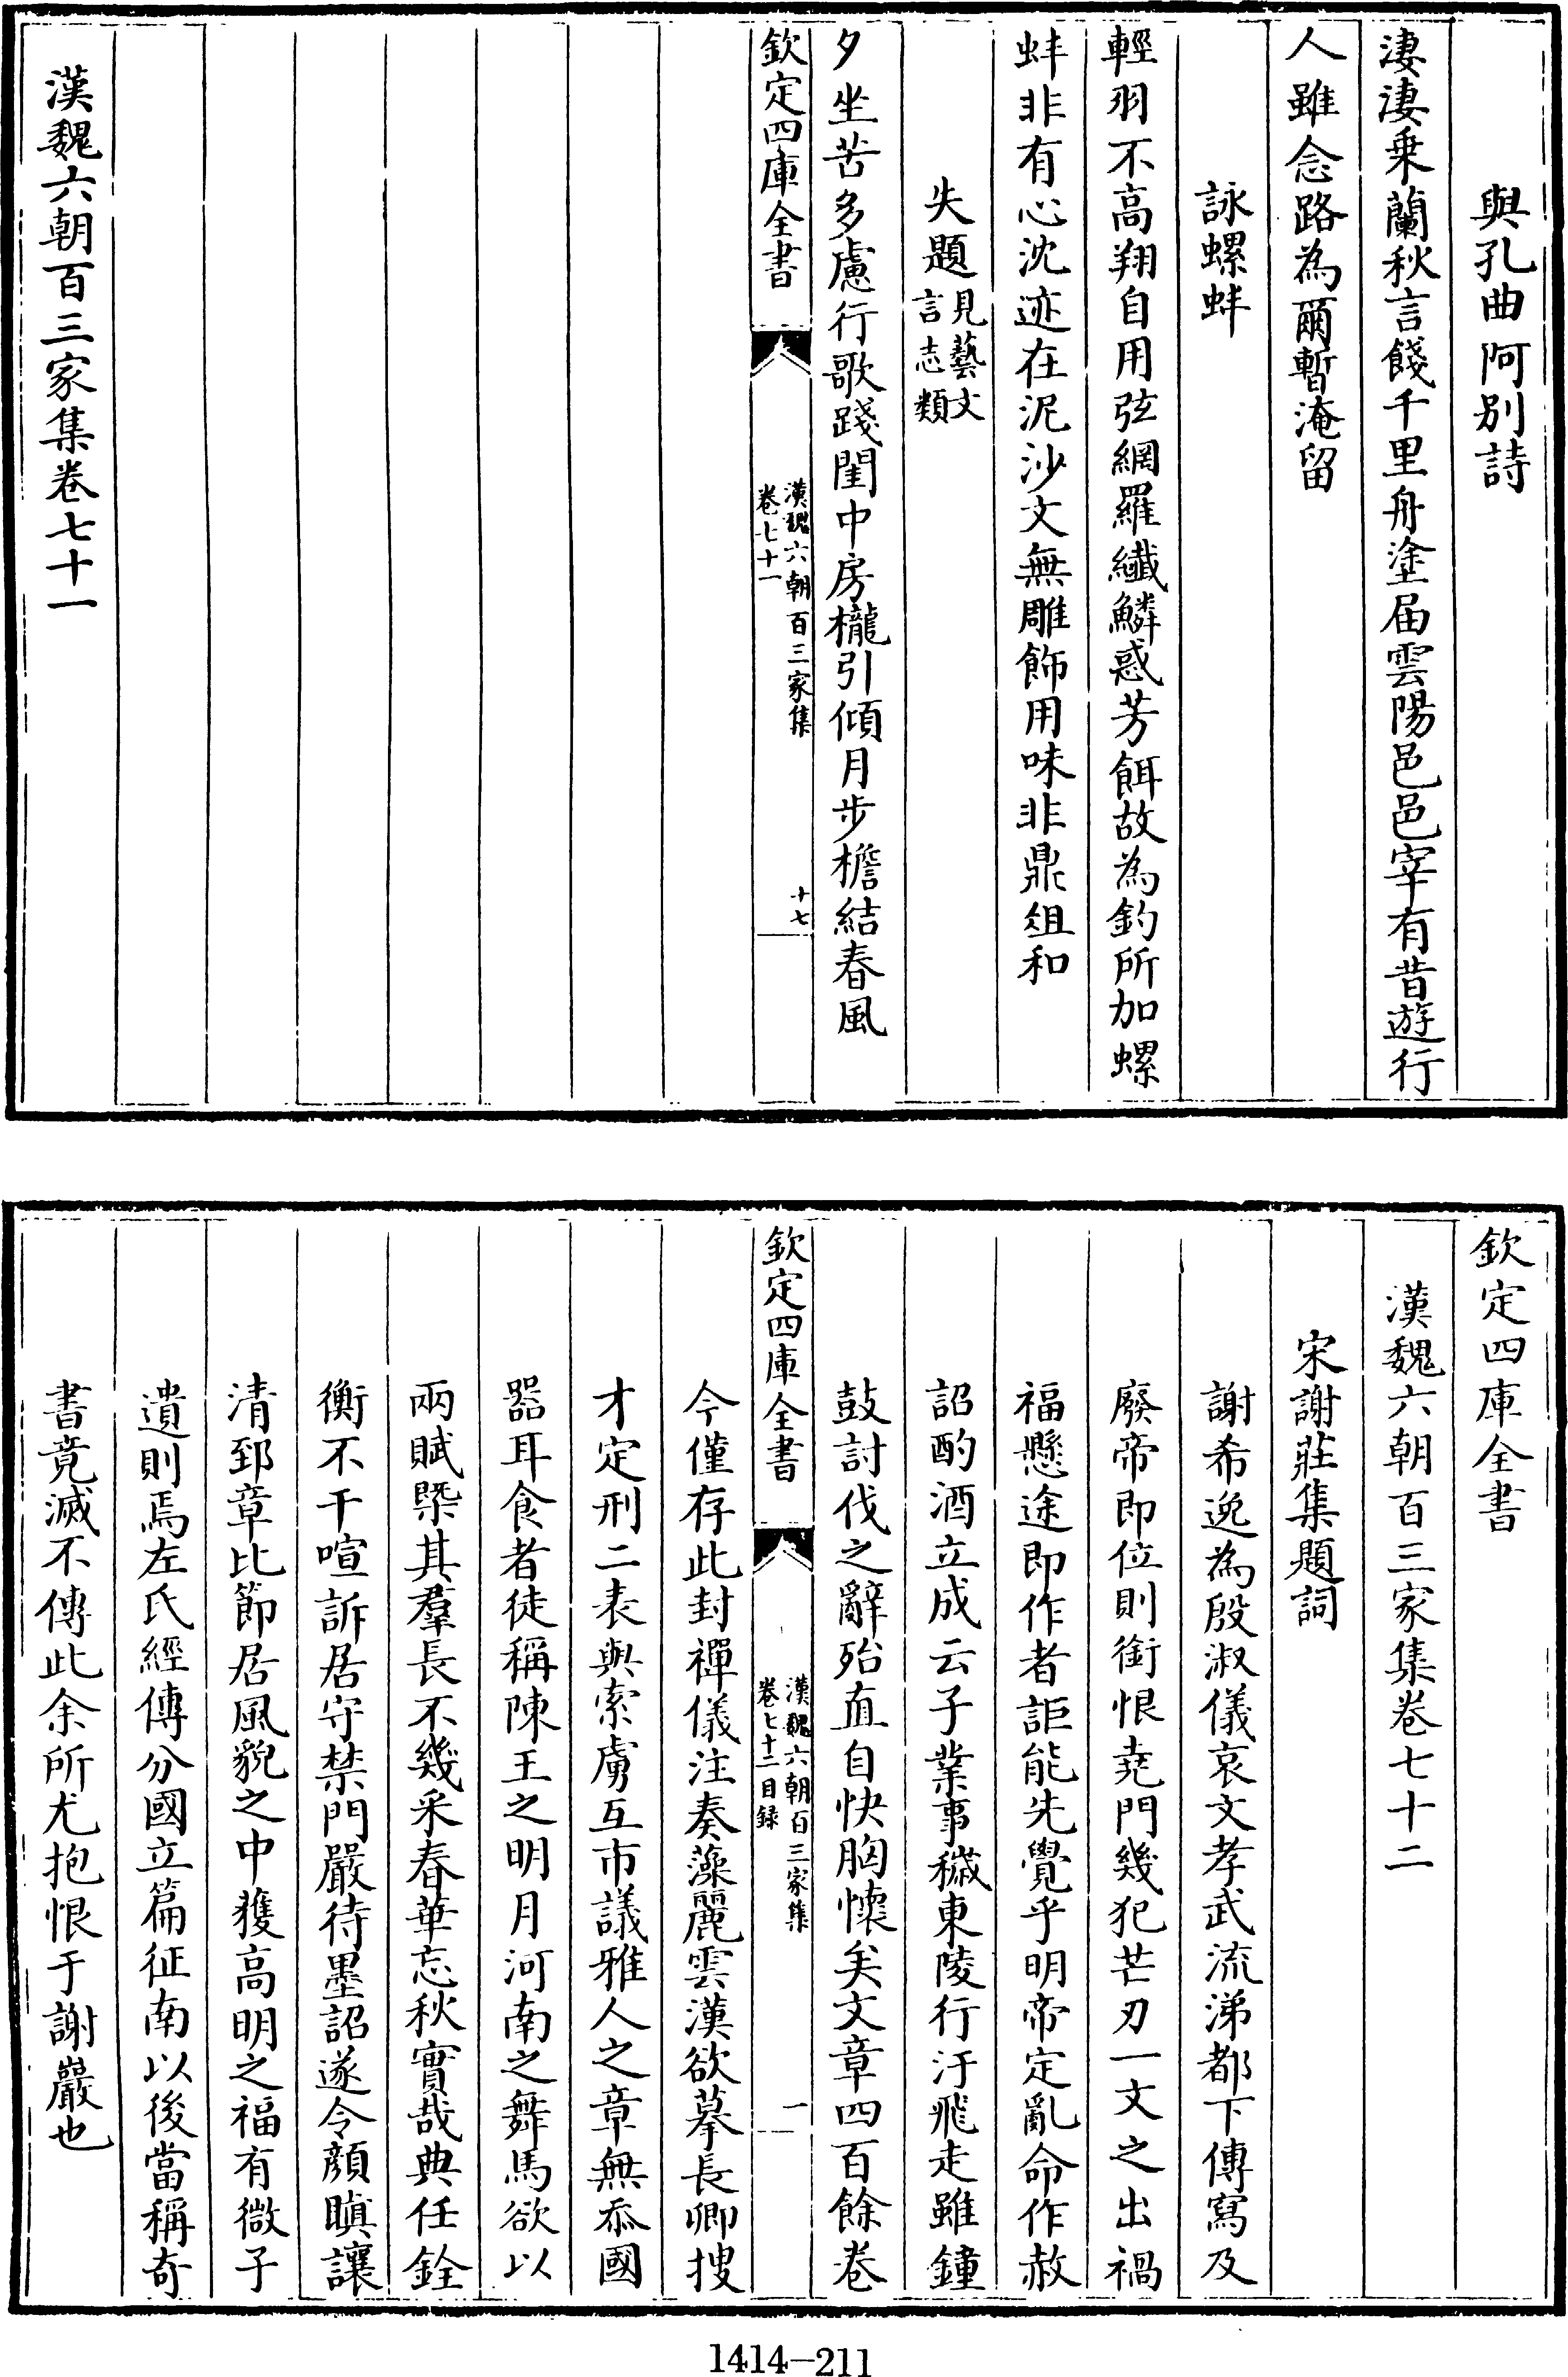 與孔曲阿別詩
淒淒乗蘭秋言餞千里舟塗届雲陽邑邑宰有昔遊行
人雖念路為爾暫淹留
詠螺蚌
輕羽不高翔自用弦網羅纎鱗惑芳餌故為釣所加螺
蚌非有心沈迹在泥沙文無雕飾用味非鼎俎和
失題見藝文
言志類
夕坐苦多慮行歌踐閨中房櫳引傾月步檐結春風
欽定四庫全書
漢魏六朝百三家集
卷七十一
十七
漢魏六朝百三家集卷七十一
欽定四庫全書
漢魏六朝百三家集卷七十二
宋謝莊集題詞
謝希逸為殷淑儀哀文孝武流涕都下傳寫及
廢帝即位則銜恨堯門幾犯芒刃一文之出禍
福懸途即作者詎能先覺乎明帝定亂命作赦
詔酌酒立成云子業事穢東陵行汙飛走雖鐘
鼓討伐之辭殆直自快胸懷矣文章四百餘卷
欽定四庫全書
漢魏六朝百三家集
卷七十二目録
一
今僅存此封禪儀注奏藻麗雲漢欲摹長卿搜
才定刑二表與索虜互市議雅人之章無忝國
器耳食者徒稱陳王之明月河南之舞馬欲以
兩賦槩其羣長不幾采春華忘秋實哉典任銓
衡不干喧訴居守禁門嚴待墨詔遂令顔瞋讓
清郅章比節居風貌之中獲高明之福有微子
遺則焉左氏經傳分國立篇征南以後當稱奇
書竟滅不傳此余所尤抱恨于謝巖也
1414-211